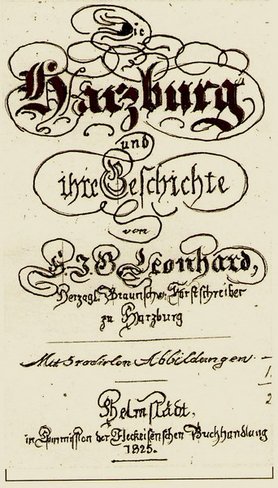 Die
Harzburg
und
ihre Geschichte
von
Leonhard,
Herzogl. Braunschw. Forstschreiber
zu Harzburg
Mit Abbildungen.
1.
2
Helmstädt,
in Commission der Fleckeisenschen Buchhandlung
1825.